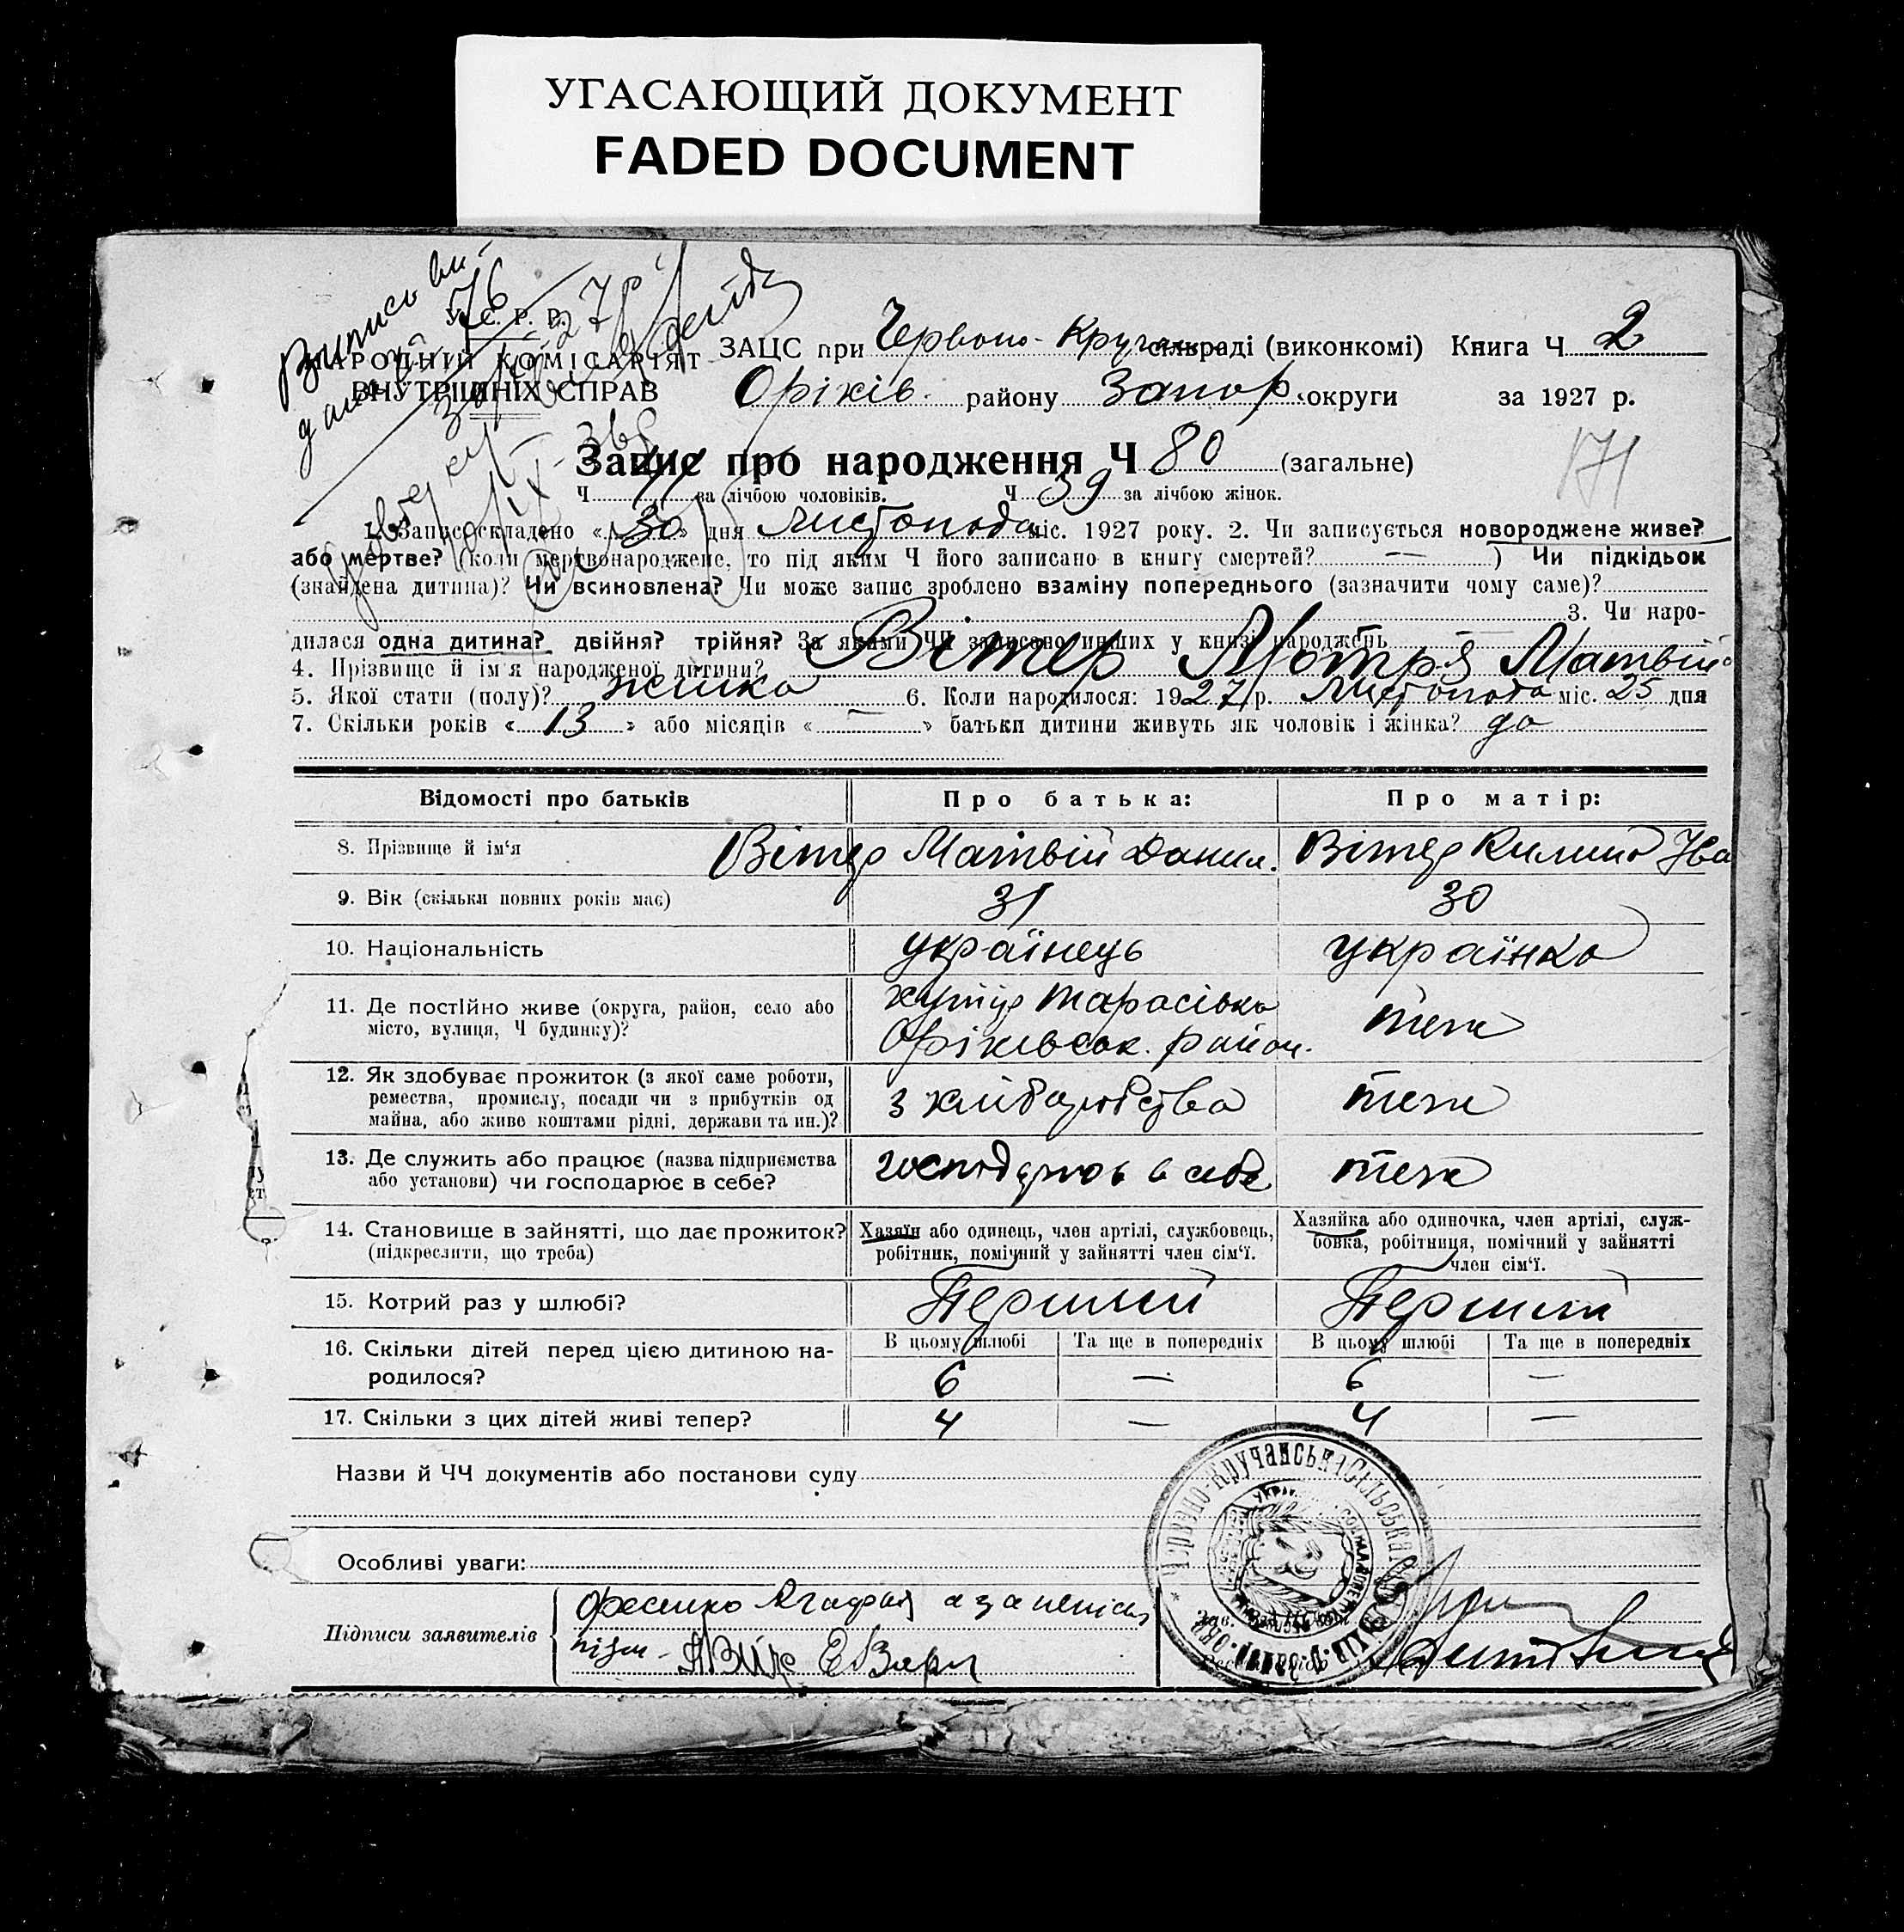 УГАСАЮЩИЙ ДОКУМЕНТ
FADED DOCUMENT
Виписъ ви-
дана
У. С. Р. Р.
НАРОДНІЙ КОМІСАРІЯТ
ВНУТРІШНІХ СПРАВ
ЗАЦС при Червоно-Кручан сільраді (виконкомі) Книга Ч 2
Оріхів. району Запор. округи за 1927 р.
Запис про народження Ч 80 (загальне)
171
Ч за лічбою чоловіків. Ч 39 за лічбою жінок.
1. Запис складено «30» дня листопада міс. 1927 року. 2. Чи записується новороджене живе?
або мертве? (коли мертвонароджене, то під яким Ч його записано в книгу смертей? — ) Чи підкідьок
(знайдена дитина)? Чи всиновлена? Чи може запис зроблено взаміну попереднього (зазначити чому саме)?
3. Чи наро-
дилася одна дитина? двійня? трійня? За якими ЧЧ записано инших у книзі народжень
4. Прізвище й ім'я народженої дитини? Вітер Мотря Матвій
5. Якої стати (полу)? жінка 6. Коли народилося: 1927 р. Листопада міс. 25 дня
7. Скільки років «13» або місяців «—» батьки дитини живуть як чоловік і жінка? да
Відомості про батьків Про батька: Про матір:
8. Прізвище й ім'я Вітер Матвій Данил. Вітер Килина Іва
9. Вік (скільки повних років має) 31 30
10. Національність українець українка
11. Де постійно живе (округа, район, село або
місто, вулиця, Ч будинку)?
хутір Тарасівка
Оріхівськ. район.
теж
12. Як здобуває прожиток (з якої саме роботи,
ремества, промислу, посади чи з прибутків од
майна, або живе коштами рідні, держави та ин.)?
з хліборобства теж
13. Де служить або працює (назва підприємства
або установи) чи господарює в себе?
господарює в себе теж
14. Становище в зайнятті, що дає прожиток?
(підкреслити, що треба)
Хазяїн або одинець, член артілі, службовець,
робітник, помічний у зайнятті член сім'ї.
Хазяйка або одиночка, член артілі, служ-
бовка, робітниця, помічний у зайнятті
член сім'ї.
15. Котрий раз у шлюбі? Перший Перший
В цьому шлюбі Та ще в попередніх В цьому шлюбі Та ще в попередніх
16. Скільки дітей перед цією дитиною на-
родилося?
6 — 6 —
17. Скільки з цих дітей живі тепер? 4 — 4 —
Назви й ЧЧ документів або постанови суду
Особливі уваги:
Підписи заявителів
Фесенко Агафія а за неписм
Червоно-Кручанська Сільська